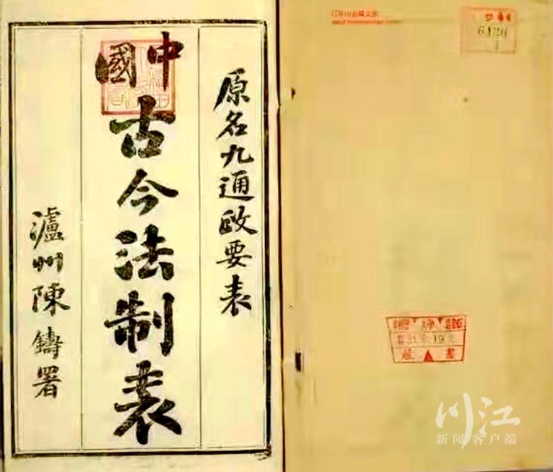 原名九通政要表
中國
古今法制表
瀘州陳鑄署
6126
川江
新闻客户端